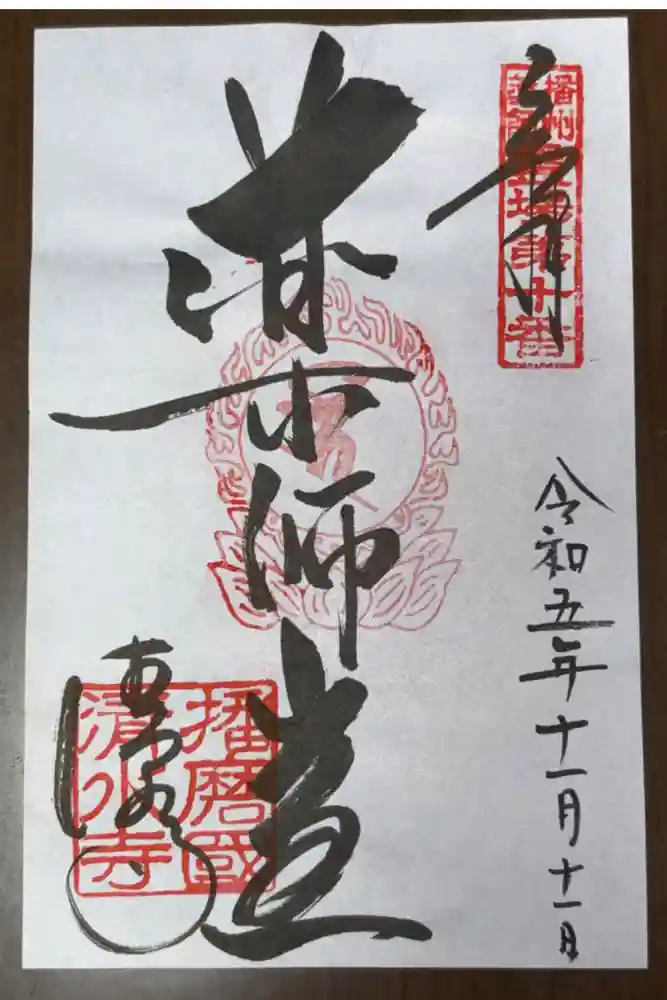 奉拝
播州
薬師霊場第十番
令和五年十一月十一日
薬師堂
播磨國
清水寺
清水寺